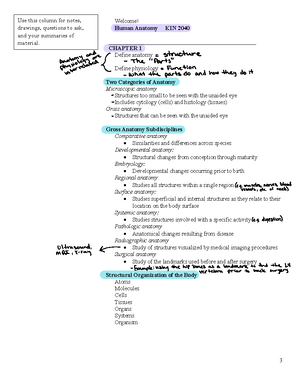 Use this column for notes,
drawings, questions to ask,
and your summaries of
material.
Welcome!
Human Anatomy KIN 2040
CHAPTER 1
Define anatomy = structure
- The "Parts"
Define physiology = Function
- What the parts do and how they do it
Anatomy and
Physiology are
interrelated
Two Categories of Anatomy
Microscopic anatomy
Structures too small to be seen with the unaided eye
Includes cytology (cells) and histology (tissues)
Gross anatomy
Structures that can be seen with the unaided eye
Gross Anatomy Subdisciplines
Comparative anatomy
• Similarities and differences across species
Developmental anatomy:
• Structural changes from conception through maturity
Embryology:
• Developmental changes occurring prior to birth
Regional anatomy:
• Studies all structures within a single region (e.g. muscles, nerves, blood
vessels, etc. of neck)
Surface anatomy:
• Studies superficial and internal structures as they relate to their
location on the body surface
Systemic anatomy:
• Studies structures involved with a specific activity (e.g. digestion)
Pathologic anatomy
• Anatomical changes resulting from disease
Radiographic anatomy
• Study of structures visualized by medical imaging procedures
Ultrasound,
MRI, X-ray
Surgical anatomy
• Study of the landmarks used before and after surgery
- Example: using the hip bones as a landmark to find the L4
vertebra prior to back surgery
Structural Organization of the Body
Atoms
Molecules
Cells
Tissues
Organs
Systems
Organism
3